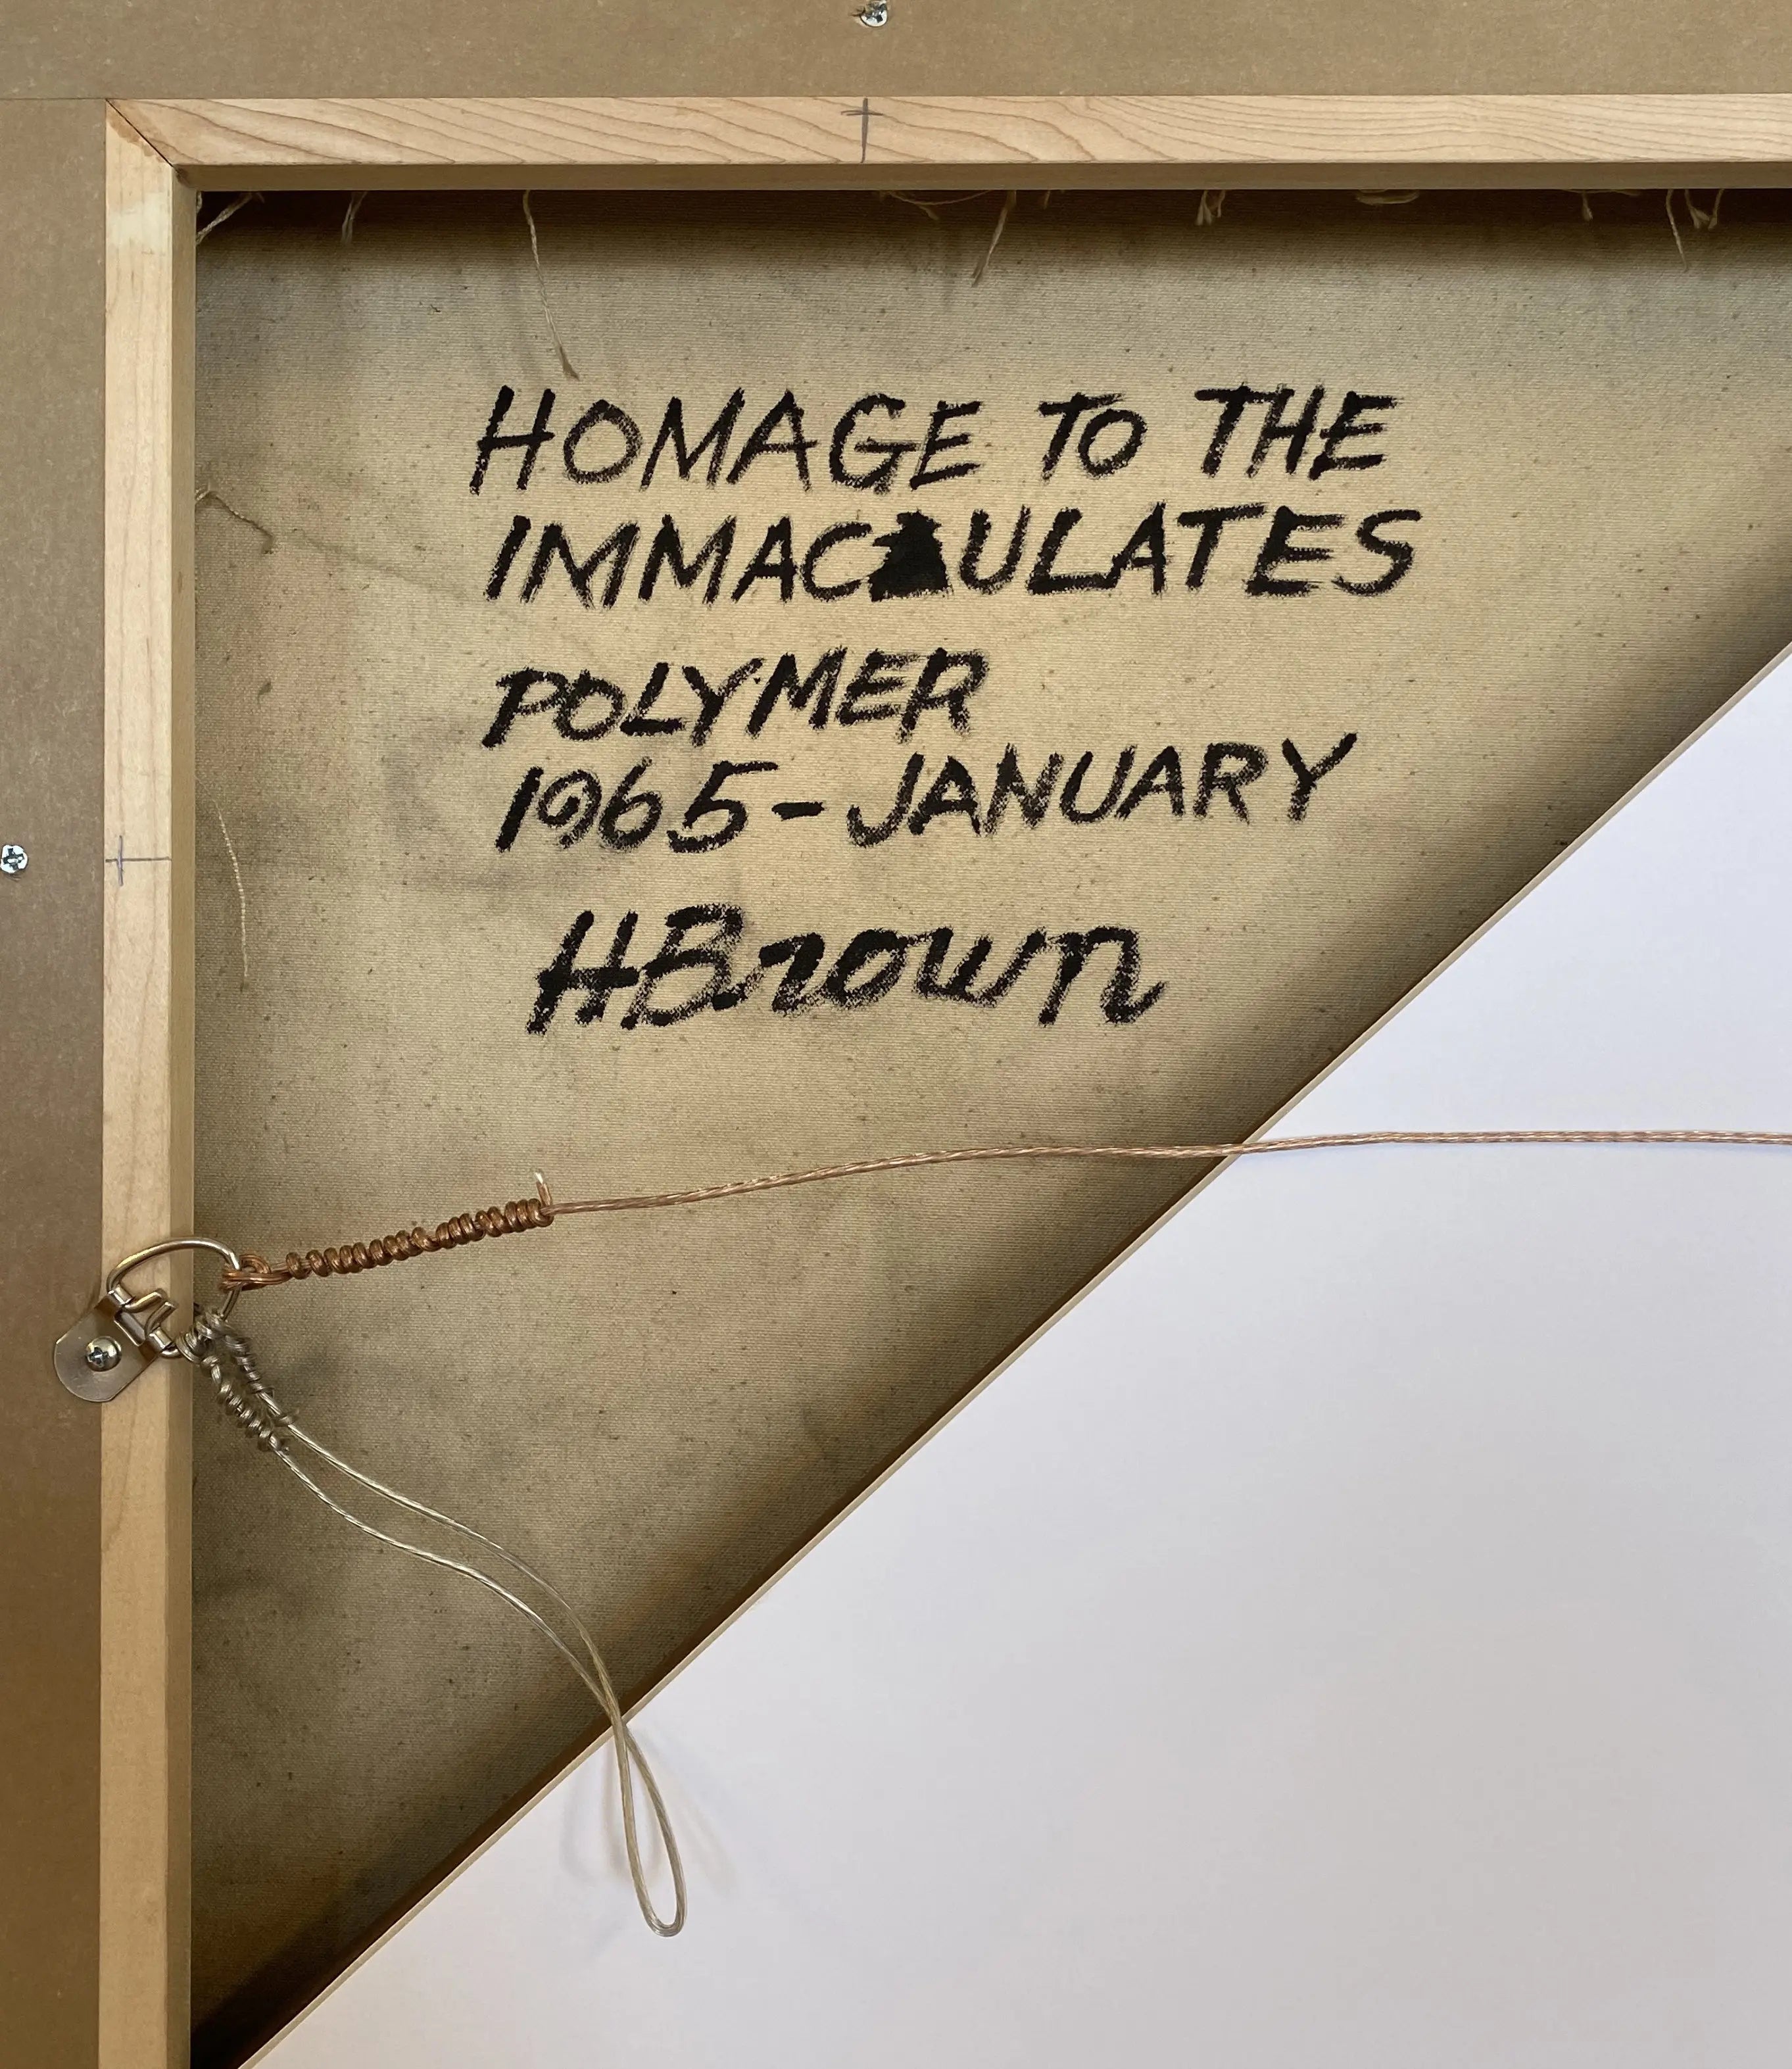 HOMAGE TO THE
IMMACULATES
POLYMER
1965-JANUARY
HBrown